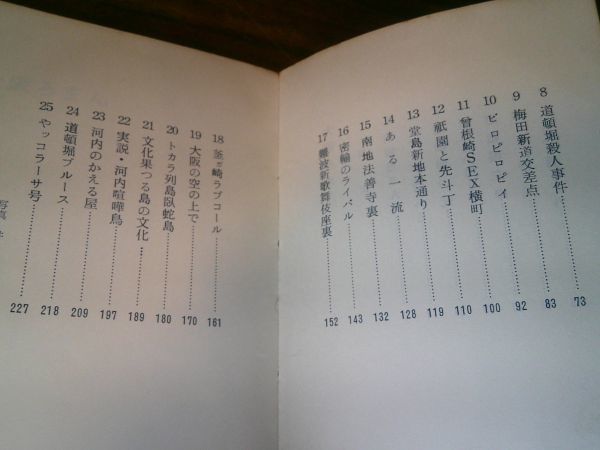 8 道頓堀殺人事件……73
9 梅田新道交差点……83
10 ピロピロピイ……92
11 曾根崎SEX横町……100
12 祇園と先斗丁……110
13 堂島新地本通り……119
14 ある一流……128
15 南地法善寺裏……132
16 密輸のライバル……143
17 難波新歌舞伎座裏……152
18 釜ヶ崎ラブコール……161
19 大阪の空の上で……170
20 トカラ列島臥蛇島……180
21 文化果つる島の文化……189
22 実説・河内喧嘩鳥……197
23 河内のかえる屋……209
24 道頓堀ブルース……218
25 やッコラーサ号……227